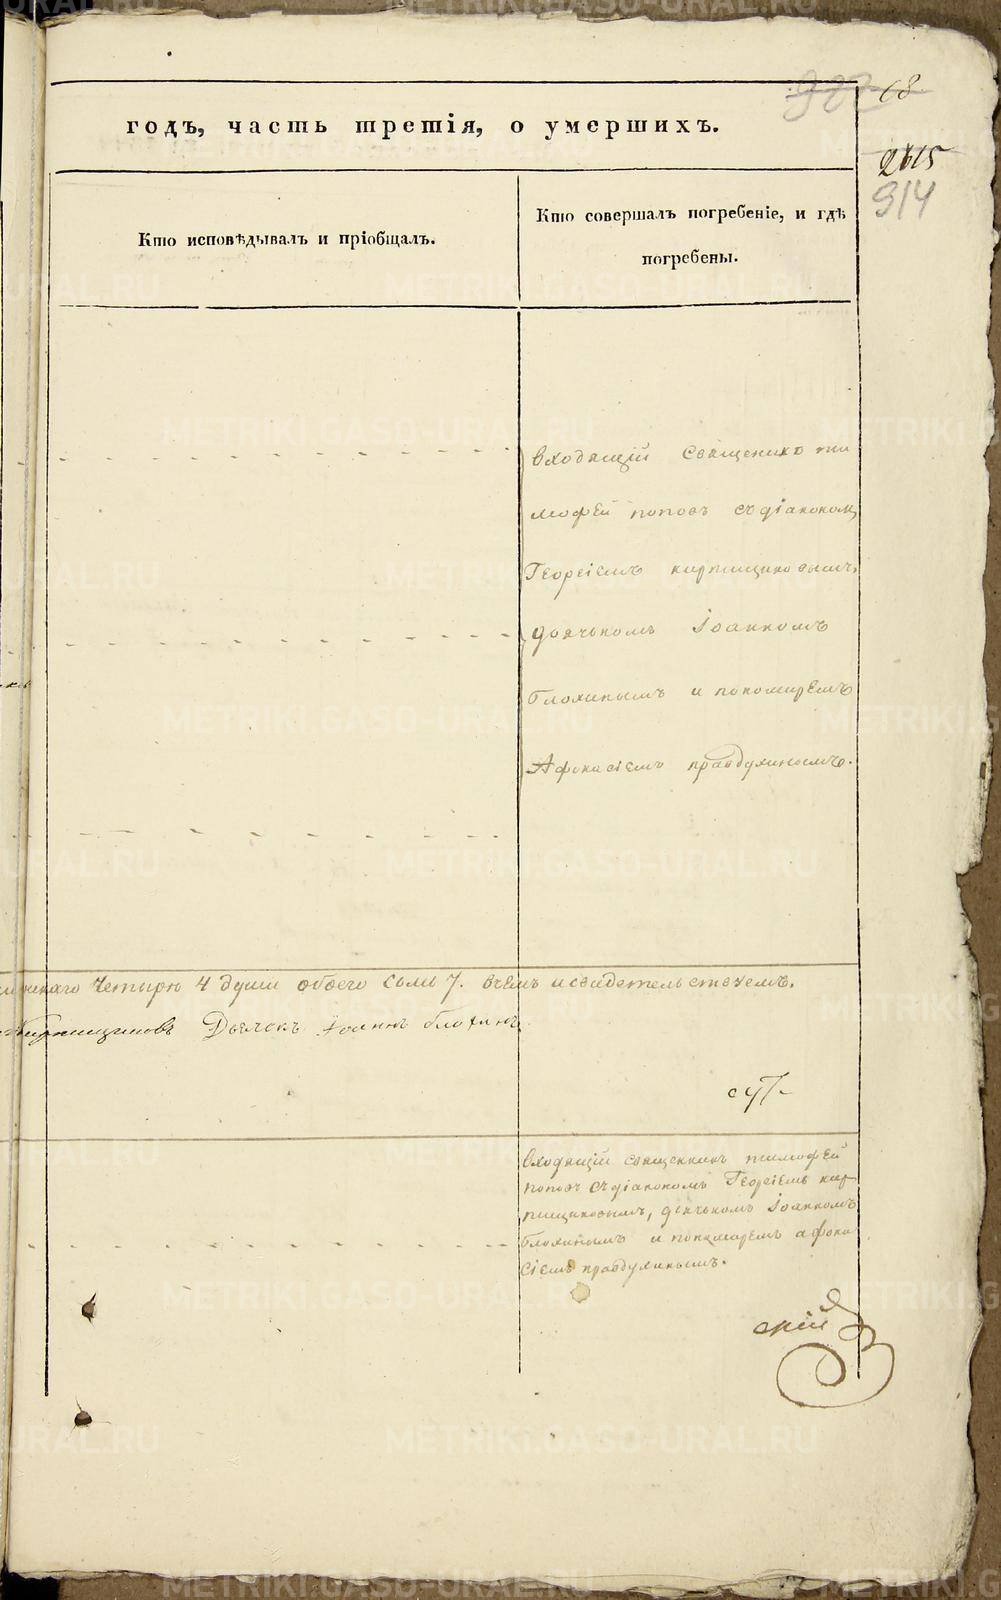 982 68
годъ, часть третія, о умершихъ.
2615
914
Кто исповѣдывалъ и пріобщалъ.
Кто совершалъ погребеніе, и гдѣ
погребены.
входящій священикъ ти
мофей поповъ съ діакономъ
Георгіемъ кирпищиковымъ,
дьячькомъ Іоанномъ
блохинымъ и пономаремъ
Афонасіемъ правдухинымъ.
женскаго четыре 4 души обоего полу 7. в чемъ и свидетельствуемъ.
Кирпищиковъ Дьячокъ Іоаннъ блохинъ
входящій священникъ тимофей
поповъ съ діакономъ Георгіемъ кир
пищиковымъ, дьячькомъ Іоанномъ
блохинымъ и пономаремъ афона
сіемъ правдухинымъ.
METRIKI.GASO-URAL.RU